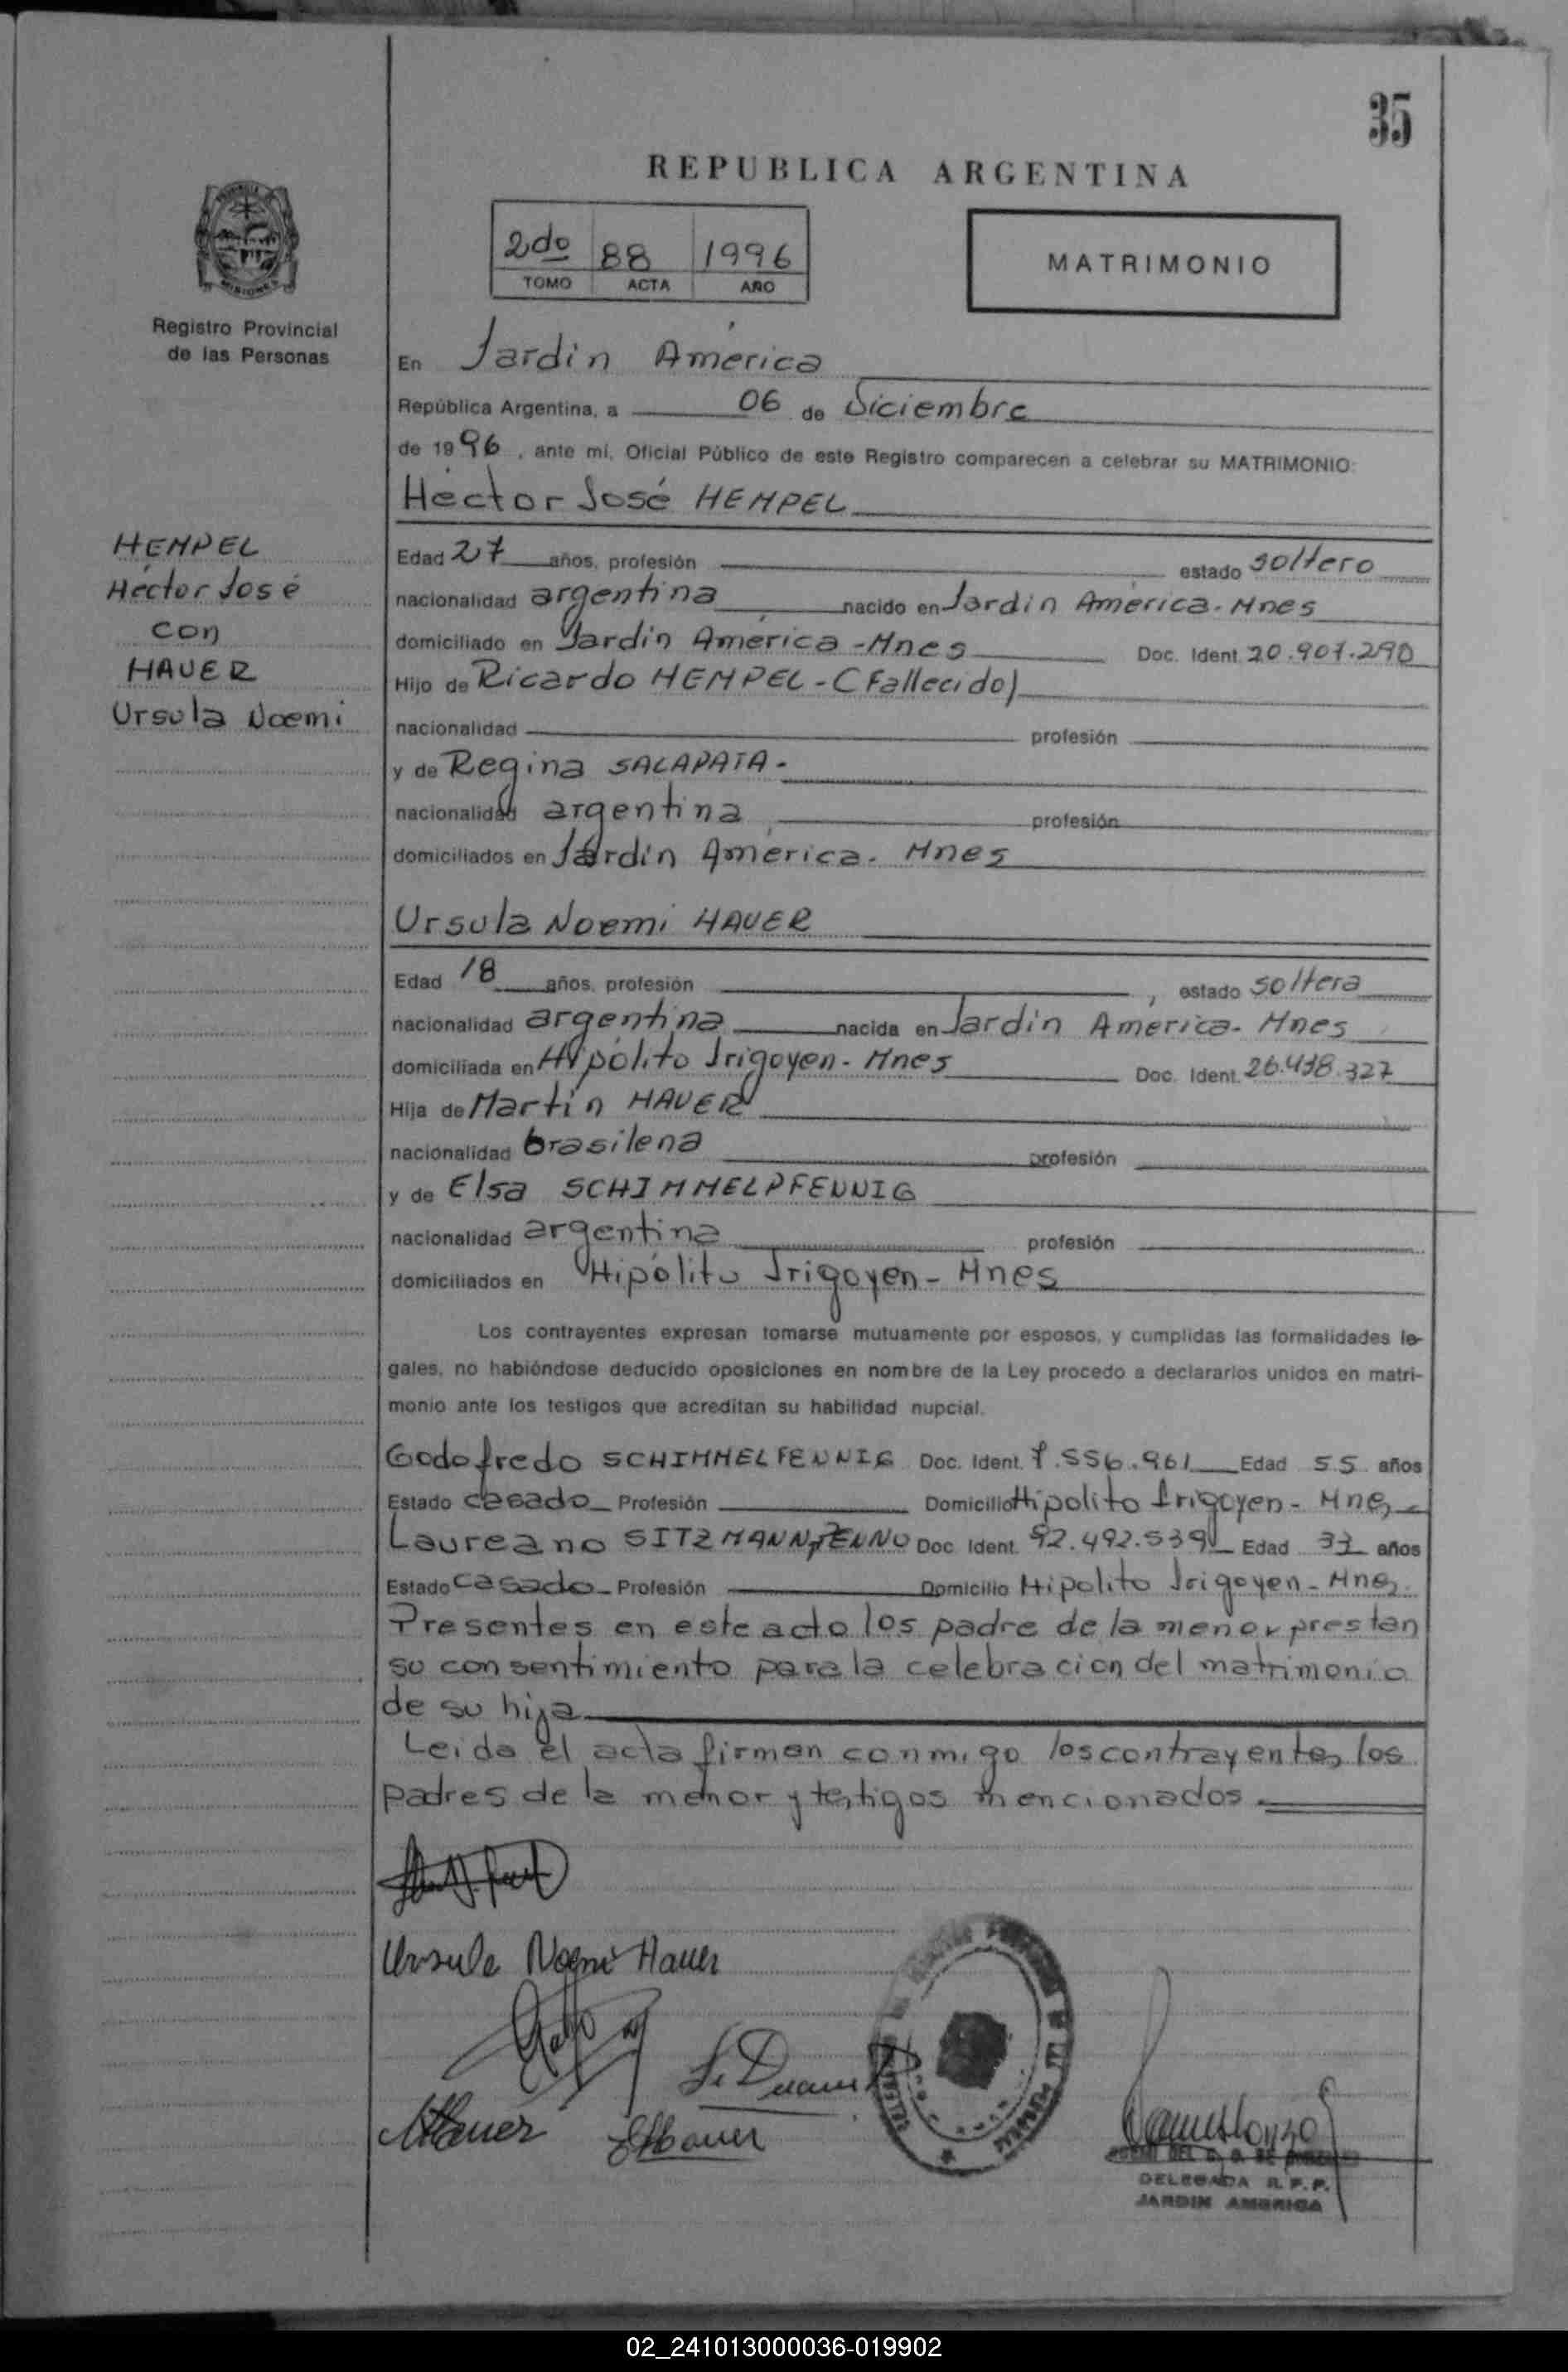 35
REPUBLICA ARGENTINA
2do 88 1996
TOMO ACTA AÑO
MATRIMONIO
Registro Provincial
de las Personas
En Jardín América
República Argentina, a 06 de Diciembre
de 1996, ante mí, Oficial Público de este Registro comparecen a celebrar su MATRIMONIO:
Héctor José HEMPEL
HEMPEL
Héctor José
con
HAUER
Ursula Noemi
Edad 27 años, profesión estado soltero
nacionalidad argentina nacido en Jardín América. Mnes
domiciliado en Jardín América - Mnes Doc. Ident. 20.907.290
Hijo de Ricardo HEMPEL - (Fallecido)
nacionalidad profesión
y de Regina SALAPATA.
nacionalidad argentina profesión
domiciliados en Jardín América. Mnes
Ursula Noemi HAUER
Edad 18 años, profesión , estado soltera
nacionalidad argentina nacida en Jardín America. Mnes
domiciliada en Hipólito Irigoyen - Mnes Doc. Ident. 26.418.327
Hija de Martín HAUER
nacionalidad brasilena profesión
y de Elsa SCHIMMELPFENNIG
nacionalidad argentina profesión
domiciliados en Hipólito Irigoyen - Mnes
Los contrayentes expresan tomarse mutuamente por esposos, y cumplidas las formalidades le-
gales, no habiéndose deducido oposiciones en nombre de la Ley procedo a declararlos unidos en matri-
monio ante los testigos que acreditan su habilidad nupcial.
Godofredo SCHIMMELFENNIG Doc. Ident. 7.556.961 Edad 55 años
Estado casado Profesión Domicilio Hipolito Irigoyen - Mnes
Laureano SITZMANN Doc. Ident. 92.492.539 Edad 37 años
Estado casado Profesión Domicilio Hipolito Irigoyen - Mnes.
Presentes en este acto los padre de la menor prestan
su consentimiento para la celebracion del matrimonio
de su hija
Leida el acta firman conmigo los contrayentes, los
padres de la menor y testigos mencionados.
Ursula Noemi Hauer
MHauer EHauer
DELEGADA R.P.P.
JARDIN AMERICA
02_241013000036-019902